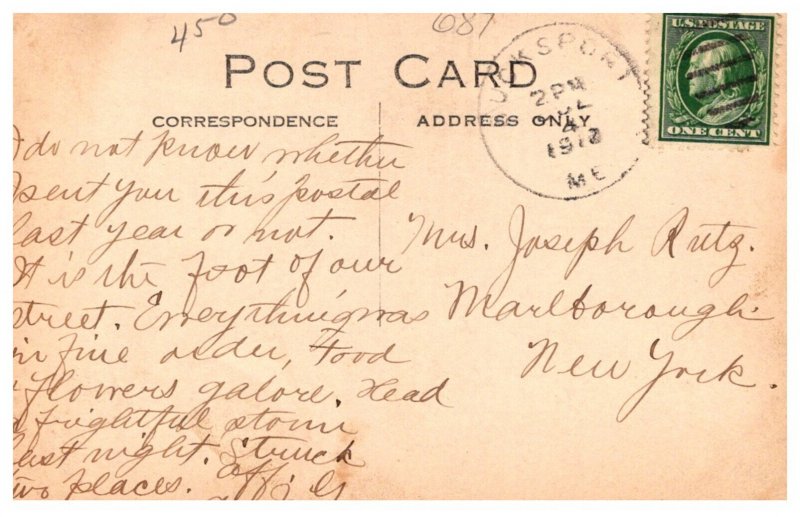 450
687
U.S. POSTAGE
ONE CENT
BUCKSPORT
2 PM
JUL
4
1912
ME
POST CARD
CORRESPONDENCE
ADDRESS ONLY
I do not know whether
I sent you this postal
last year or not.
It is the foot of our
street. Everything was
in fine order, Food
& flowers galore. Head
a frightful storm
last night. Struck
two places.
Mrs. Joseph Rutz.
Marlborough
New York.